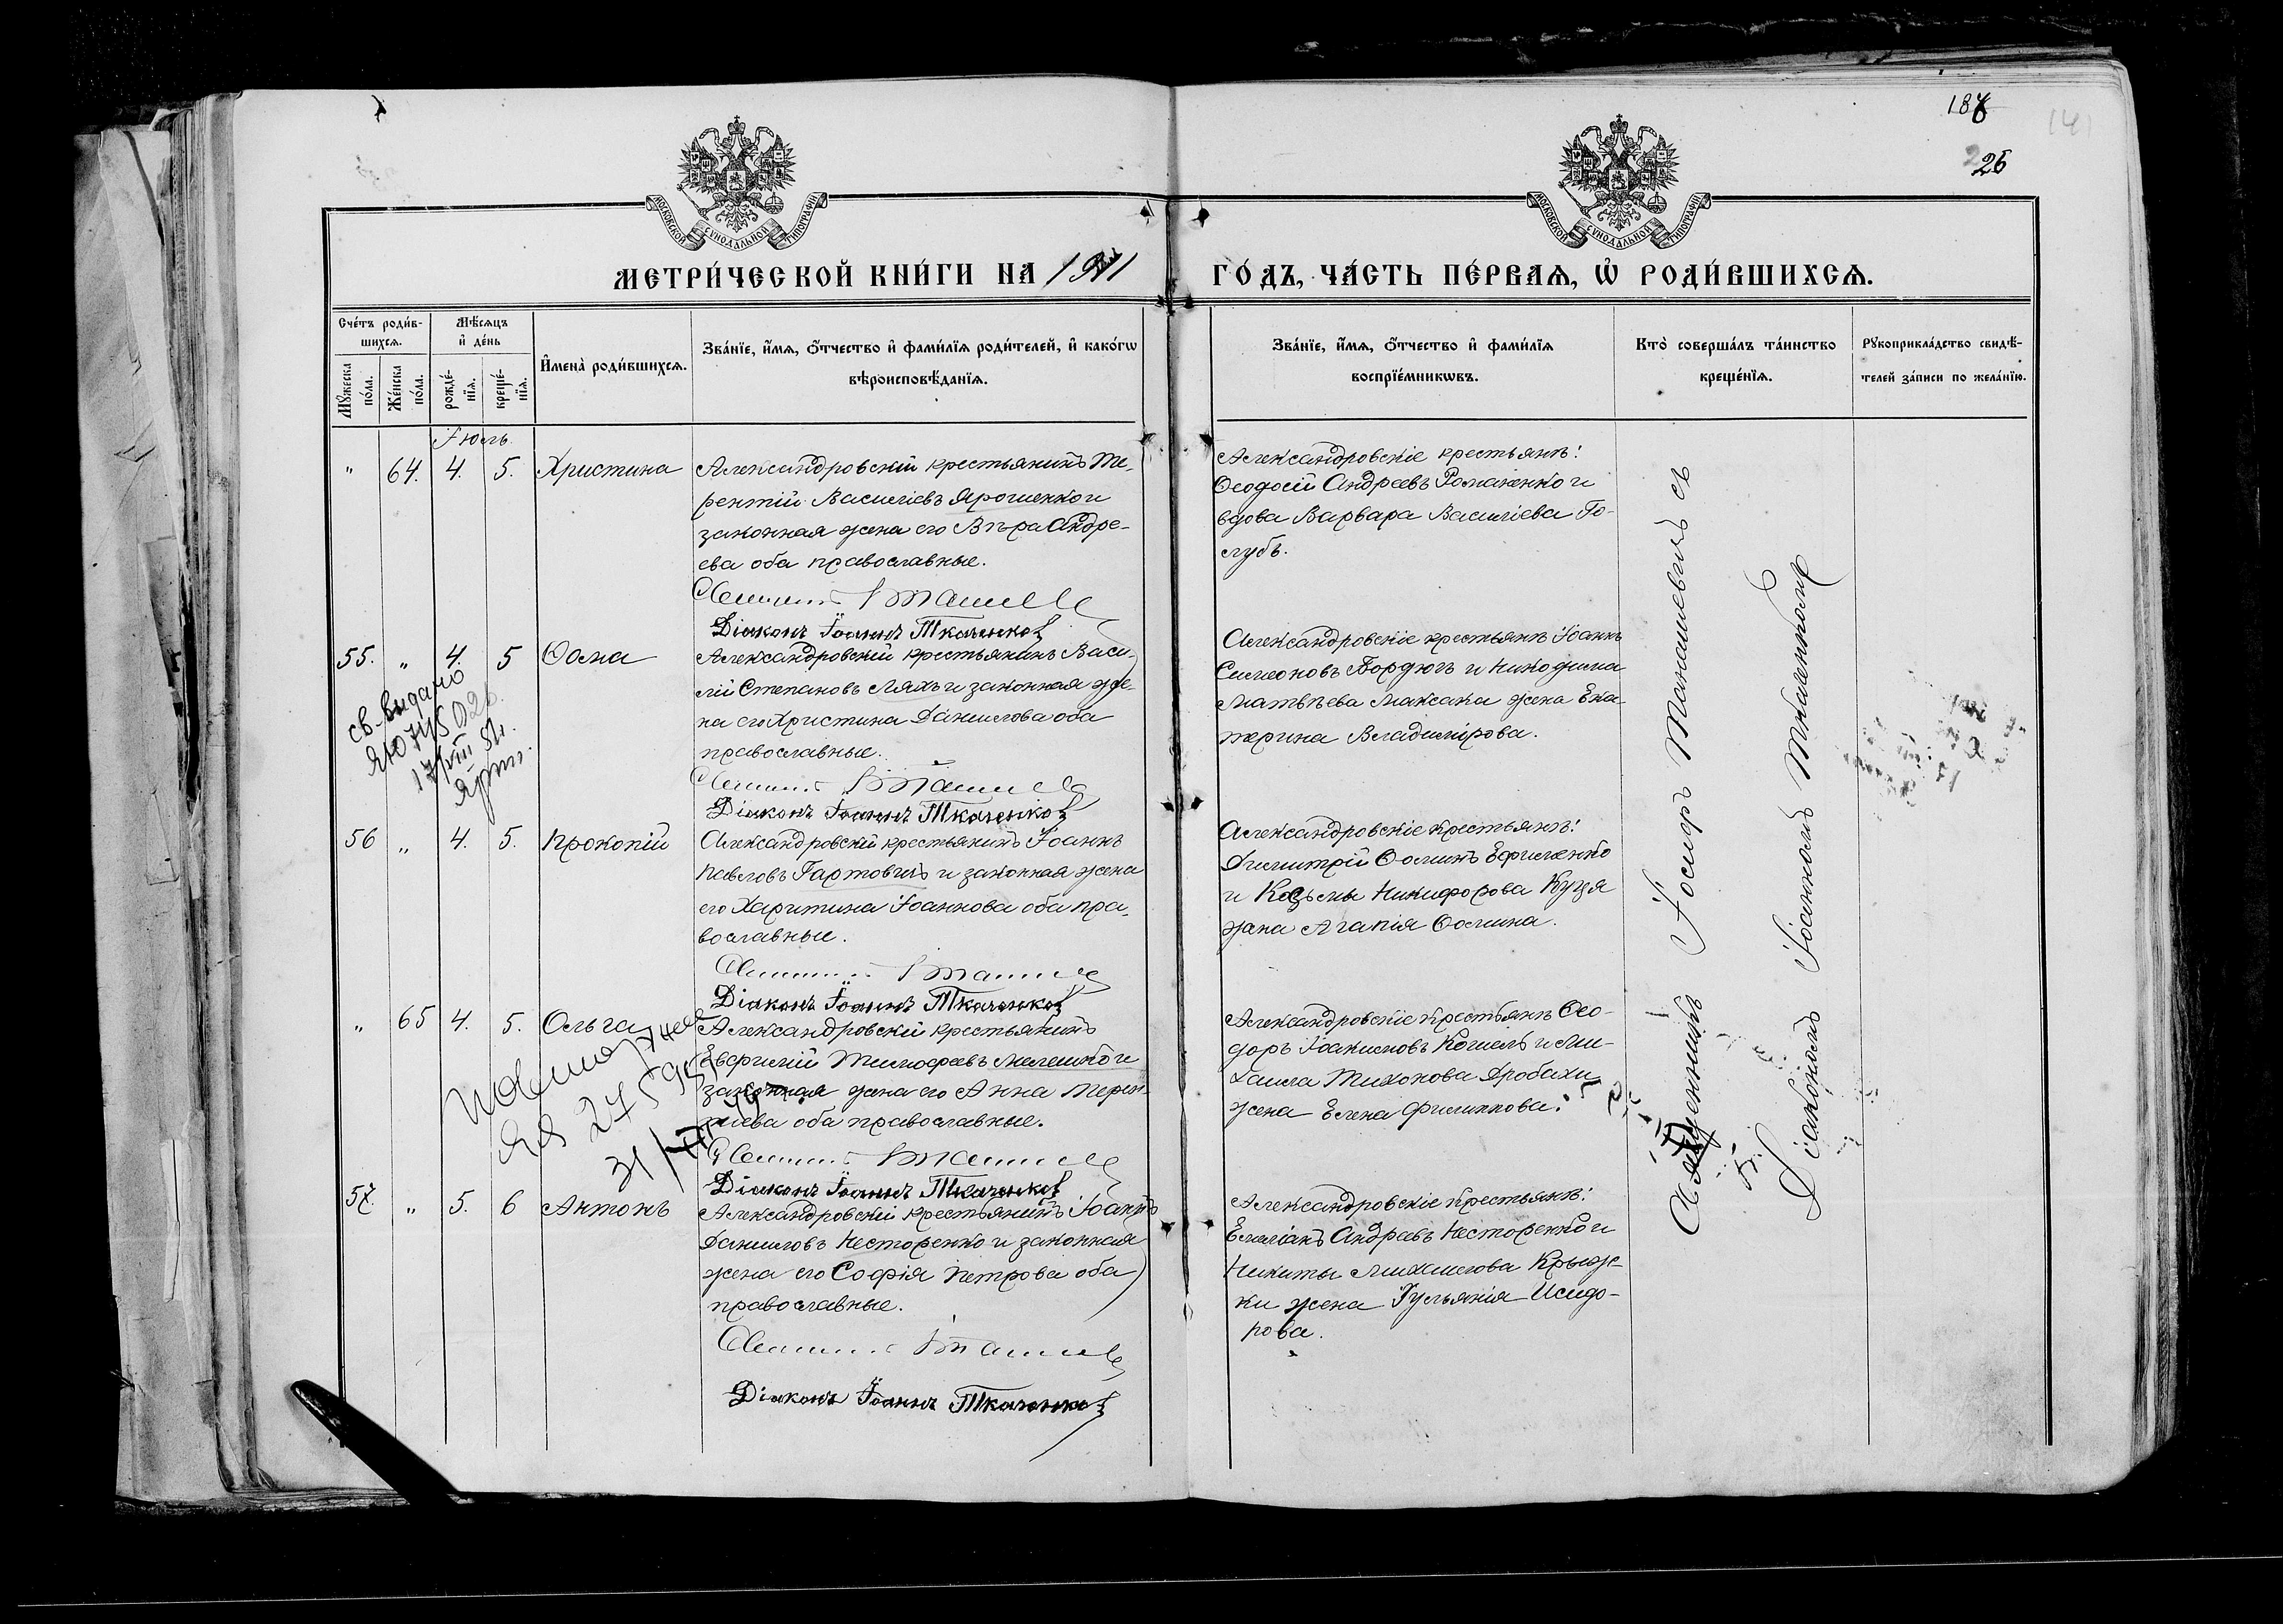 187
26
МОСКОВСКОЙ СѴНОДАЛЬНОЙ ТИПОГРАФІИ
МОСКОВСКОЙ СѴНОДАЛЬНОЙ ТИПОГРАФІИ
МЕТРИ́ЧЕСКОЙ КНИ́ГИ НА 1911 ГО́ДЪ, ЧА́СТЬ ПЕ́РВАѦ, Ѽ РОДИ́ВШИХСѦ.
Сче́тъ роди́в-
шихсѧ.
Мꙋжеска по́ла.
Же́нска по́ла.
Мѣ́сѧцъ
и҆ де́нь
рожде́-
нїѧ.
креще́-
нїѧ.
И҆мена̀ роди́вшихсѧ.
Зва́нїе, и҆́мѧ, ѻ҆́тчество и҆ фами́лїѧ роди́телей, и҆ како́гѡ
вѣроисповѣ́данїѧ.
Зва́нїе, и҆́мѧ, ѻ҆́тчество и҆ фами́лїѧ
воспрїе́мникѡвъ.
Кто̀ соверша́лъ та́инство
креще́нїѧ.
Рꙋкоприкла́дство свидѣ́-
телей за́писи по жела́нїю.
Іюль.
" 64. 4. 5. Христина
Александровскій крестьянинъ Те-
рентій Васильевъ Ярошенко и
законная жена его Вѣра Андре-
ева оба православные.
Діаконъ Іоаннъ Ткаченко
Александровскіе крестьяне:
Ѳеодосій Андреевъ Романенко и
вдова Варвара Васильева Го-
лубъ.
55. " 4. 5 Ѳома
св-видано
Александровскій крестьянинъ Васи-
лій Степановъ Ляхъ и законная же-
на его Христина Даниилова оба
православные.
Діаконъ Іоаннъ Ткаченко
Александровскіе крестьяне Іоаннъ
Симеоновъ Бордюгъ и Никодима
Матвѣева Максака жена Ека-
терина Владимірова.
56 " 4. 5. Прокопій
Александровскій крестьянинъ Іоаннъ
Павловъ Гартовилъ и законная жена
его Харитина Іоаннова оба пра-
вославные.
Діаконъ Іоаннъ Ткаченко
Александровскіе крестьяне:
Димитрій Ѳоминъ Ефименко
и Козьмы Никифорова Куця
жена Агапія Ѳомина.
" 65 4. 5. Ольга
Александровскій крестьянинъ
Евфимій Тимофеевъ Мелешко и
законная жена его Анна Терен-
тіева оба православные.
Діаконъ Іоаннъ Ткаченко
Александровскіе крестьяне Ѳео-
доръ Іоакимовъ Кошель и Ми-
хаила Тихонова Дробахи
жена Елена Филиппова.
57. " 5. 6 Антонъ
Александровскій крестьянинъ Іоаннъ
Данииловъ Несторенко и законная
жена его Софія Петрова оба
православные.
Діаконъ Іоаннъ Ткаченко
Александровскіе крестьяне:
Емеліанъ Андреевъ Несторенко и
Никиты Михаилова Крыж-
ки жена Іульянія Исидо-
рова.
Священникъ Іосифъ Манашевичъ съ
Діакономъ Іоанномъ Ткаченкомъ